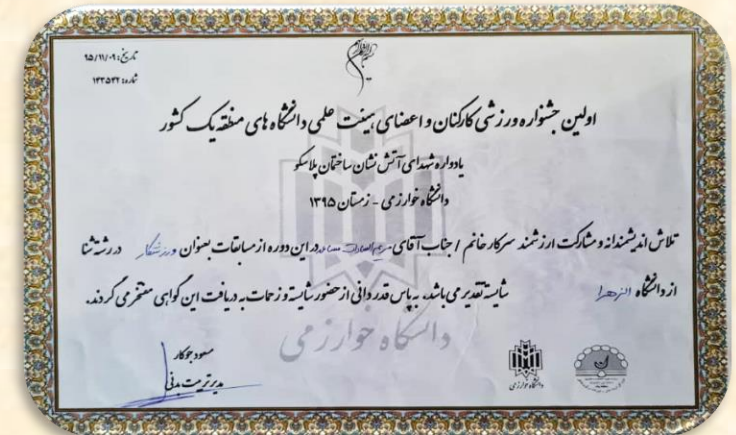 بسم الله الرحمن الرحیم
تاریخ: ۹۵/۱۱/۰۹
شماره: ۱۴۳۵۴۲
اولین جشنواره ورزشی کارکنان و اعضای هیئت علمی دانشگاه های منطقه یک کشور
یادواره شهدای آتش نشان ساختمان پلاسکو
دانشگاه خوارزمی - زمستان ۱۳۹۵
تلاش اندیشمندانه و مشارکت ارزشمند سرکار خانم / جناب آقای در این دوره از مسابقات بعنوان ورزشکار در رشته شنا
از دانشگاه الزهرا شایسته تقدیر می باشد، به پاس قدردانی از حضور شایسته و زحمات به دریافت این گواهی مفتخر می گردند.
دانشگاه خوارزمی
مسعود جوکار
مدیر تربیت بدنی
دانشگاه خوارزمی